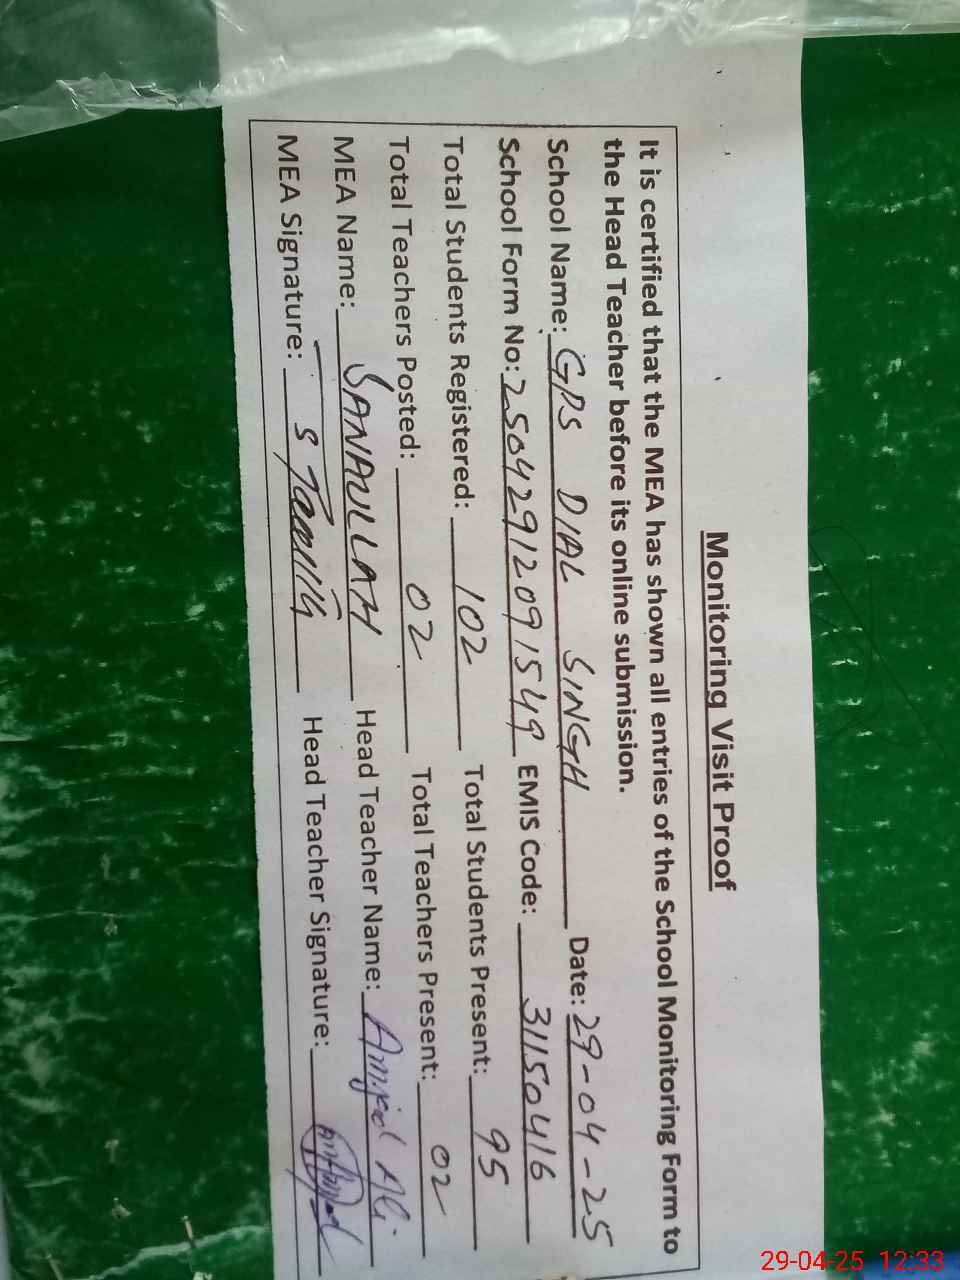 Monitoring Visit Proof
It is certified that the MEA has shown all entries of the School Monitoring Form to
the Head Teacher before its online submission.
School Name: GPS DIAL SINGH Date: 29-04-25
School Form No: 2504291209 1549 EMIS Code: 31150416
Total Students Registered: 102 Total Students Present: 95
Total Teachers Posted: 02 Total Teachers Present: 02
MEA Name: SANAULLAH Head Teacher Name: Amjad Ali
MEA Signature: Head Teacher Signature:
29-04-25 12:33